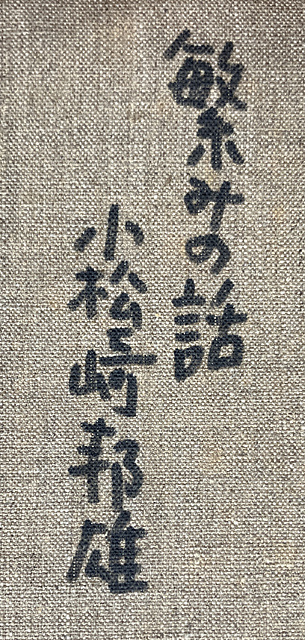 繁みの話
小松崎邦雄